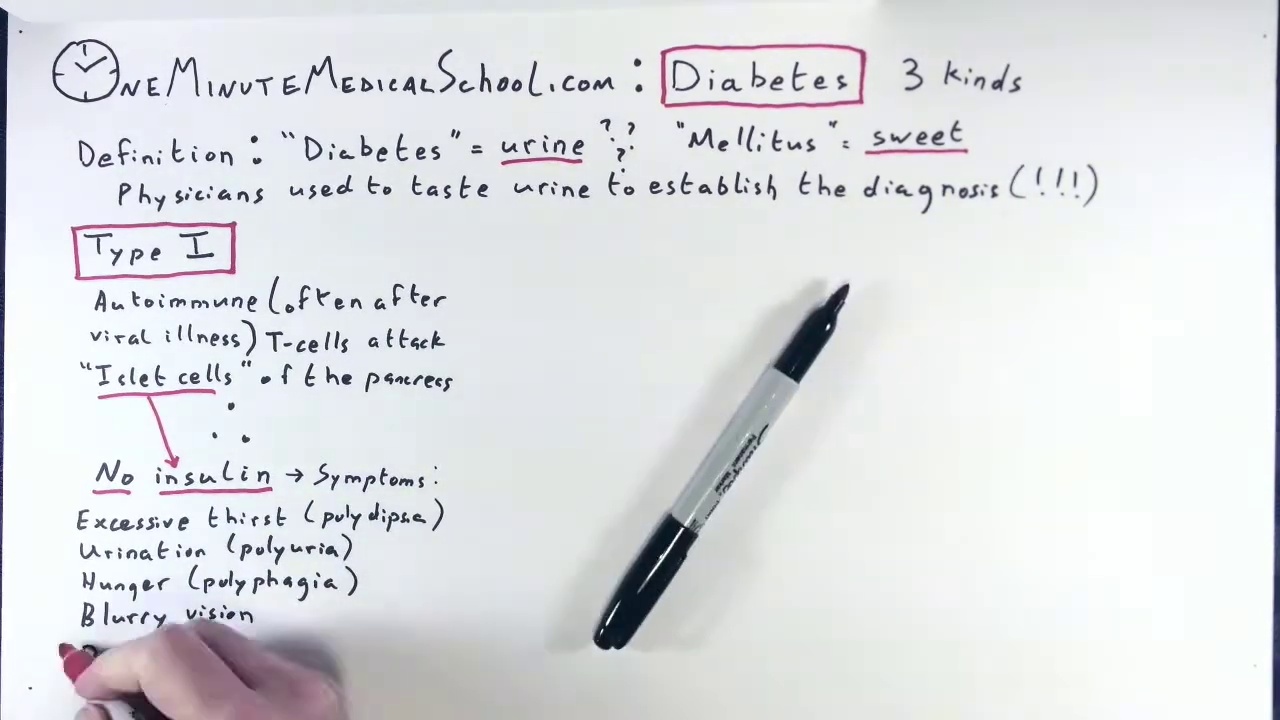 OneMinuteMedicalSchool.com : Diabetes 3 kinds
Definition : "Diabetes" = urine ??? "Mellitus" = sweet
Physicians used to taste urine to establish the diagnosis (!!!)
Type I
Autoimmune (often after
viral illness) T-cells attack
"Islet cells" of the pancreas
No insulin → Symptoms:
Excessive thirst (polydipsia)
Urination (polyuria)
Hunger (polyphagia)
Blurry vision